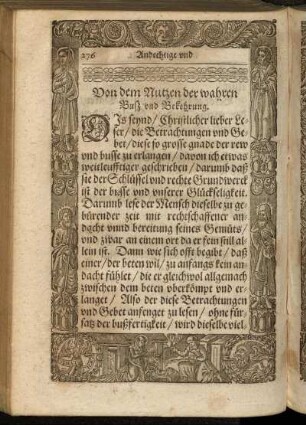 276 Andechtige vnd
Von dem Nutzen der wahren
Buß vnd Bekehrung.
DIs seynd / Christlicher lieber Le-
ser / die Betrachtungen vnd Ge-
bet / diese so grosse gnade der rew
vnd busse zu erlangen / davon ich etwas
weitleufftiger geschrieben / darumb daß
sie der Schlüssel vnd rechte Grundwerck
ist der busse vnd vnserer Glückseligkeit.
Darumb lese der Mensch dieselbe zu ge-
bürender zeit mit rechtschaffener an-
dacht vnnd bereitung seines Gemüts /
vnd zwar an einem ort da er fein still al-
lein ist. Dann wie sich offt begibt / daß
einer / der beten wil / zu anfangs kein an-
dacht fühlet / die er gleichwol allgemach
zwischen dem beten vberkömpt vnd er-
langet / Also der diese Betrachtungen
vnd Gebet anfenget zu lesen / ohne für-
satz der bußfertigkeit / wird dieselbe viel